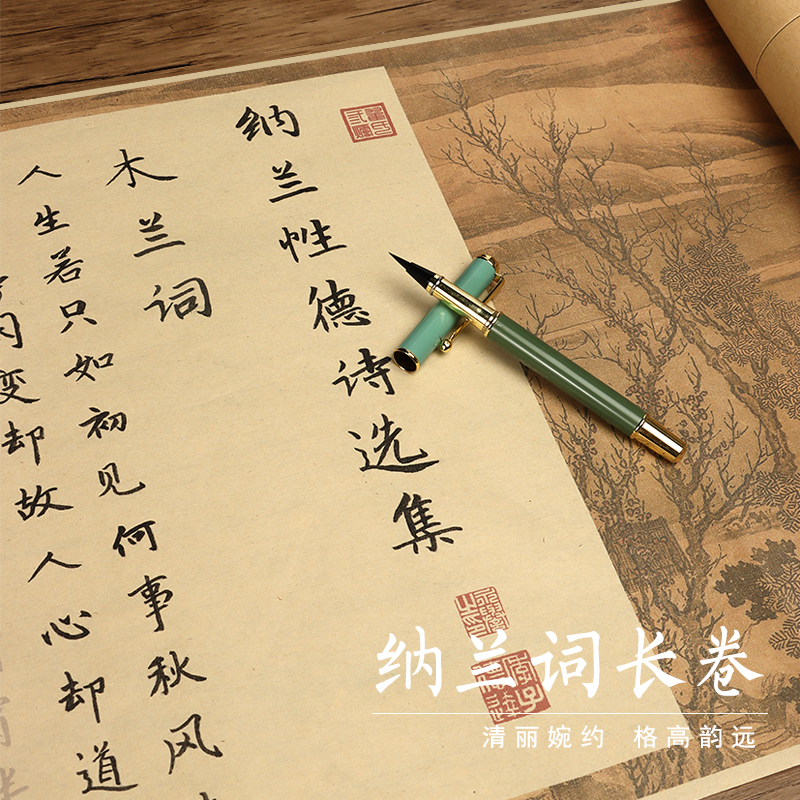 纳兰性德诗选集
木兰词
人生若只如初见何事秋风
变却故人心却道
纳兰词长卷
清丽婉约 格高韵远